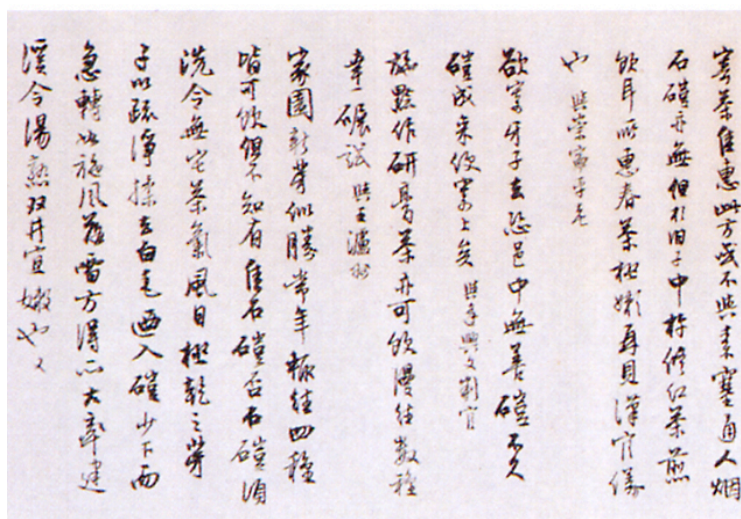 寄茶佳惠此方或不與末塞通人烟
石磑亦無但於旧子中杵修仁茶煎
飲耳所惠春茶極嫩再見漢官儀
也 與崇寧平老
欲寄牙子去恐邑中無善磑不久
磑成末便寄上矣 與李興文判官
施黔作研膏茶亦可飲漫往数種
幸一碾試 與王瀘州
家園新芽似勝常年輒往四種
皆可飲但不知有佳石磑否石磑須
洗令無它茶氣風日極乾之芽
子以疏淨揉去白毛迺入磑少下而
急轉如旋風落雪方得所大率建
溪令湯熟双井宜嫩也